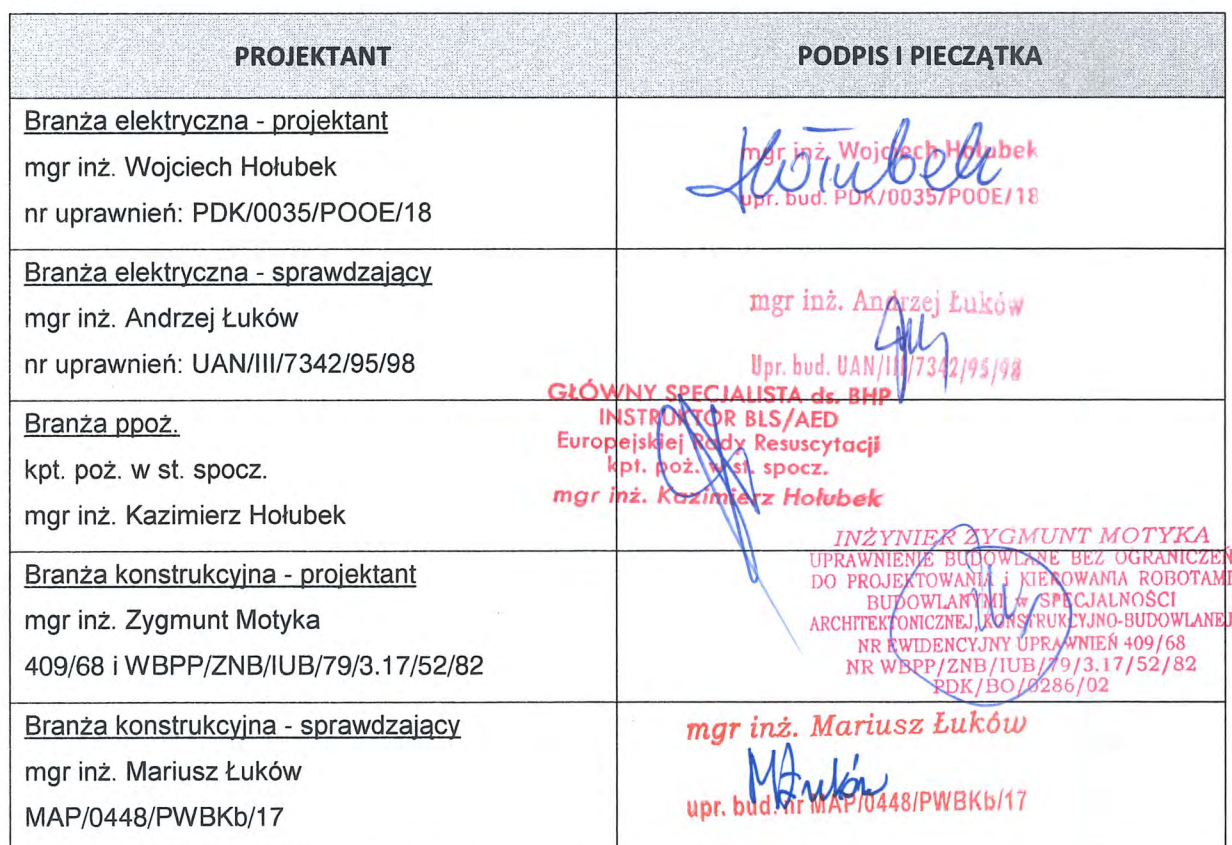 PROJEKTANT
PODPIS I PIECZĄTKA
Branża elektryczna - projektant
mgr inż. Wojciech Hołubek
nr uprawnień: PDK/0035/POOE/18
mgr inż. Wojciech Hołubek
Hołubek
upr. bud. PDK/0035/POOE/18
Branża elektryczna - sprawdzający
mgr inż. Andrzej Łuków
nr uprawnień: UAN/III/7342/95/98
mgr inż. Andrzej Łuków
Upr. bud. UAN/III/7342/95/98
Branża ppoż.
kpt. poż. w st. spocz.
mgr inż. Kazimierz Hołubek
GŁÓWNY SPECJALISTA ds. BHP
INSTRUKTOR BLS/AED
Europejskiej Rady Resuscytacji
kpt. poż. w st. spocz.
mgr inż. Kazimierz Hołubek
Branża konstrukcyjna - projektant
mgr inż. Zygmunt Motyka
409/68 i WBPP/ZNB/IUB/79/3.17/52/82
INŻYNIER ZYGMUNT MOTYKA
UPRAWNIENIE BUDOWLANE BEZ OGRANICZEŃ
DO PROJEKTOWANIA i KIEROWANIA ROBOTAMI
BUDOWLANYMI w SPECJALNOŚCI
ARCHITEKTONICZNEJ, KONSTRUKCYJNO-BUDOWLANEJ
NR EWIDENCYJNY UPRAWNIEŃ 409/68
NR WBPP/ZNB/IUB/79/3.17/52/82
PDK/BO/0286/02
Branża konstrukcyjna - sprawdzający
mgr inż. Mariusz Łuków
MAP/0448/PWBKb/17
mgr inż. Mariusz Łuków
MŁuków
upr. bud. nr MAP/0448/PWBKb/17